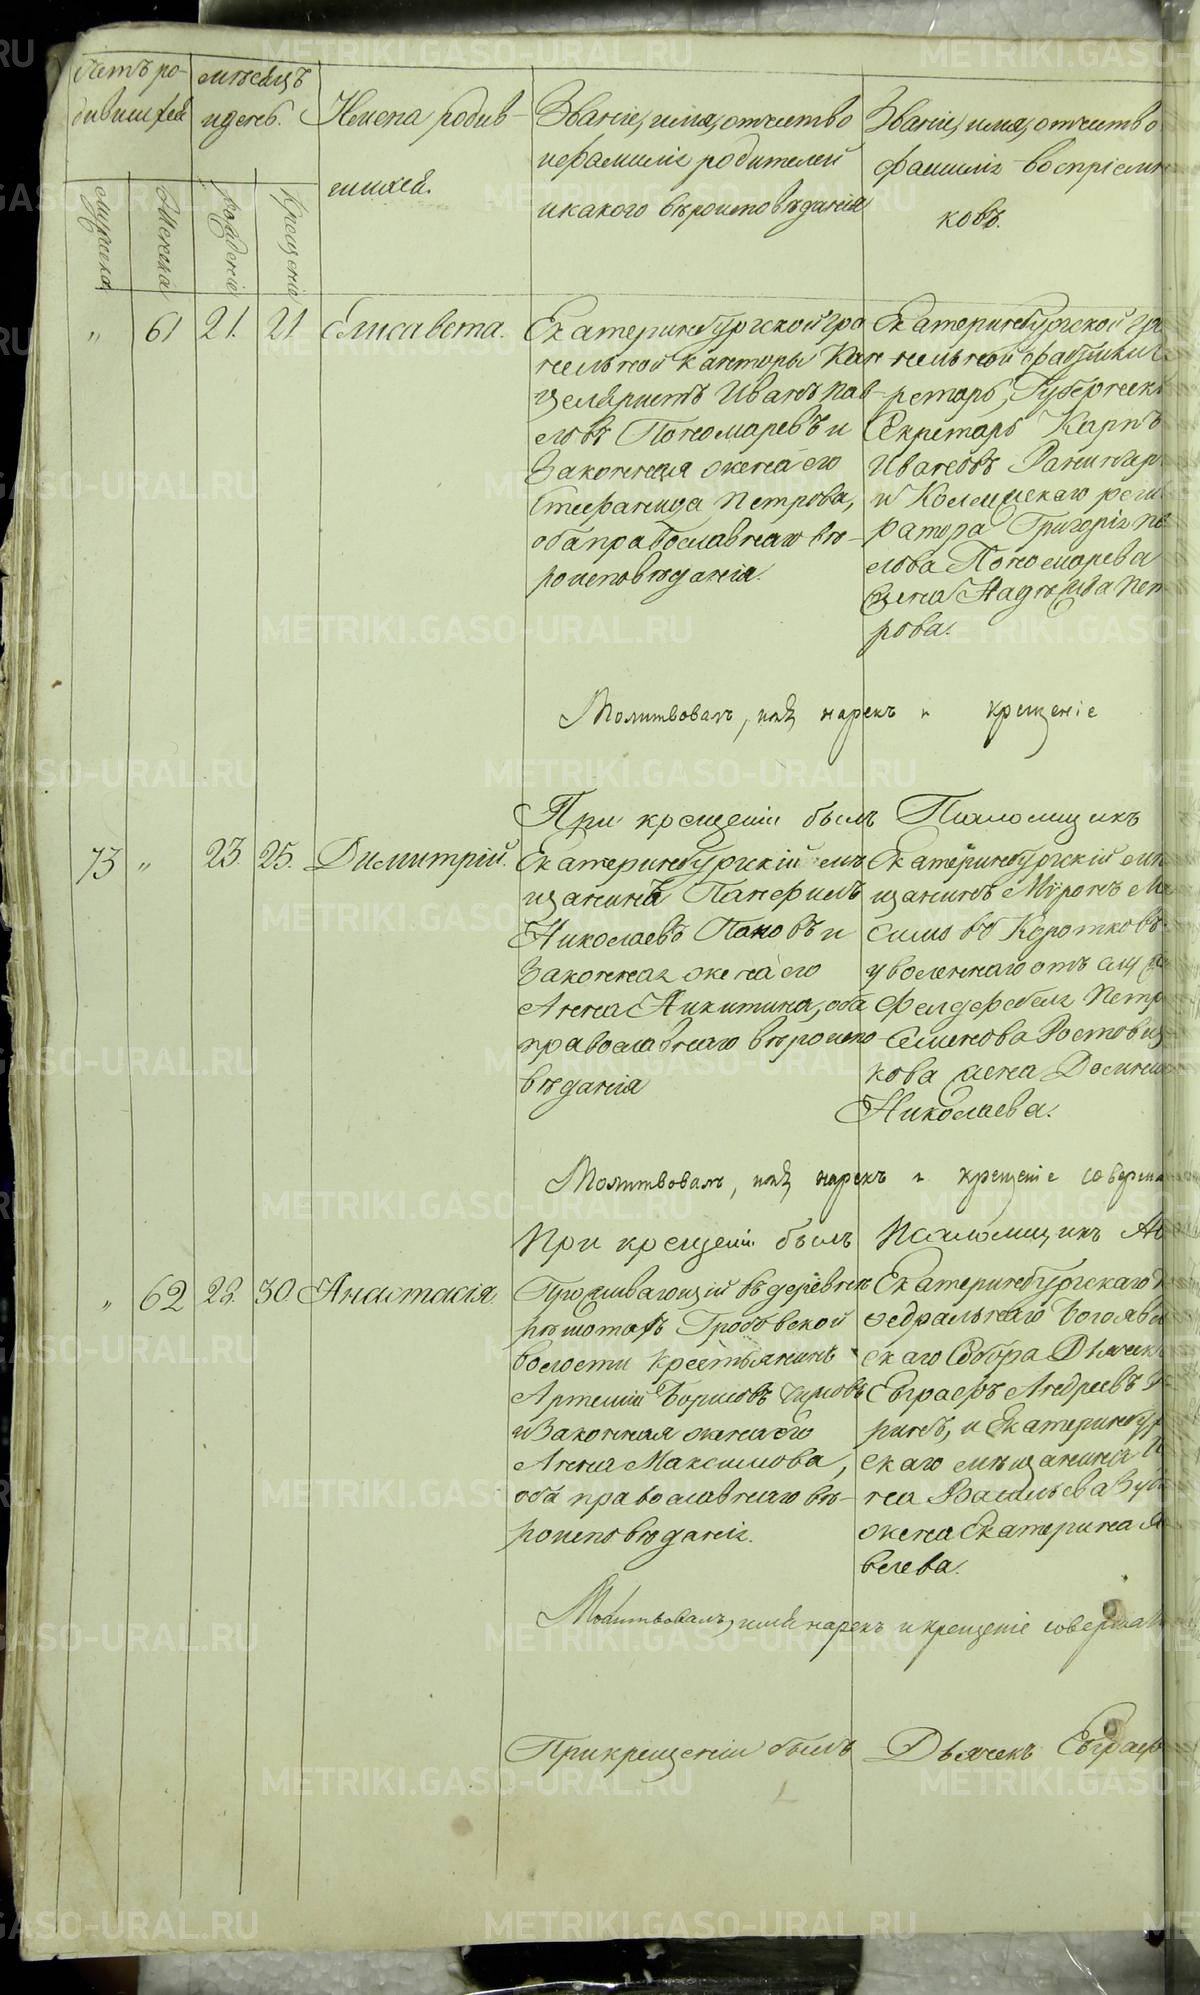 мѣсяцъ
и день.
Имена родив-
шихся.
Званіе, имя, отчество
и фамилія родителей
и какого вѣроисповѣданія
Званіе, имя, отчество
фамилія воспріемни
ковъ.
мужеска
женска
рожденія
крещенія
" 61 21. 21 Елисавета.
Екатеринбургской гра
нильной канторы Кан
целяристъ Иванъ Пав
ловъ Пономаревъ и
законная жена его
Стефанида Петрова,
оба православнаго вѣ-
роисповѣданія.
Екатеринбургской гра
нильной фабрики
ретарь, Губернскі
Секретарь Карпъ
Ивановъ
и Коллежскаго реги
ратора Григорія
лова Пономарева
жена Надежда Пет
рова.
Молитвовалъ, имя нарекъ и крещеніе
При крещеніи былъ Псаломщикъ
73 " 23. 25. Димитрій.
Екатеринбургскій мѣ
щанинъ Панфилъ
Николаевъ Пановъ и
законная жена его
Анна Никитина, оба
православнаго вѣроиспо
вѣданія
Екатеринбургскій мѣ
щанинъ Мѵронъ
симовъ Коротковъ
уволеннаго отъ слу
Фелдфебеля Петр
Семенова Ростовщ
кова жена Домни
Николаева.
Молитвовалъ, имя нарекъ и крещеніе соверша
При крещеніи былъ Псаломщикъ
" 62 28. 30. Анастасія.
Проживающій въ деревнѣ
рѣшотахъ Гробовской
волости крестьянинъ
Артемій Борисовъ
и законная жена его
Анна Максимова,
оба православнаго вѣ-
роисповѣданія.
Екатеринбургскаго
ѳедральнаго Богоявлен
скаго Собора Дьячекъ
Евграфъ Андреевъ
ринъ, и Екатеринбур
скаго мѣщанина
на Васильева
жена Екатерина
велева.
Молитвовалъ, имя нарекъ и крещеніе соверша
При крещеніи былъ Дьячекъ Евграф
METRIKI.GASO-URAL.RU